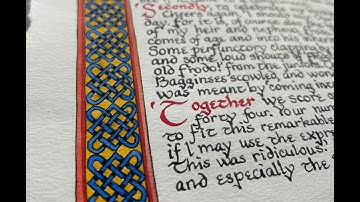 Secondly, to celebrate
Cheers again. I should
day: for it is, of course, also
of my heir and nephew,
comes of age and into his
Some perfunctory clapping
and some loud shouts of
old Frodo! from the
Bagginses scowled, and
was meant by coming
Together we score
forty four. Your
to fit this remarkable
if I may use the expre
This was ridiculous.
and especially the